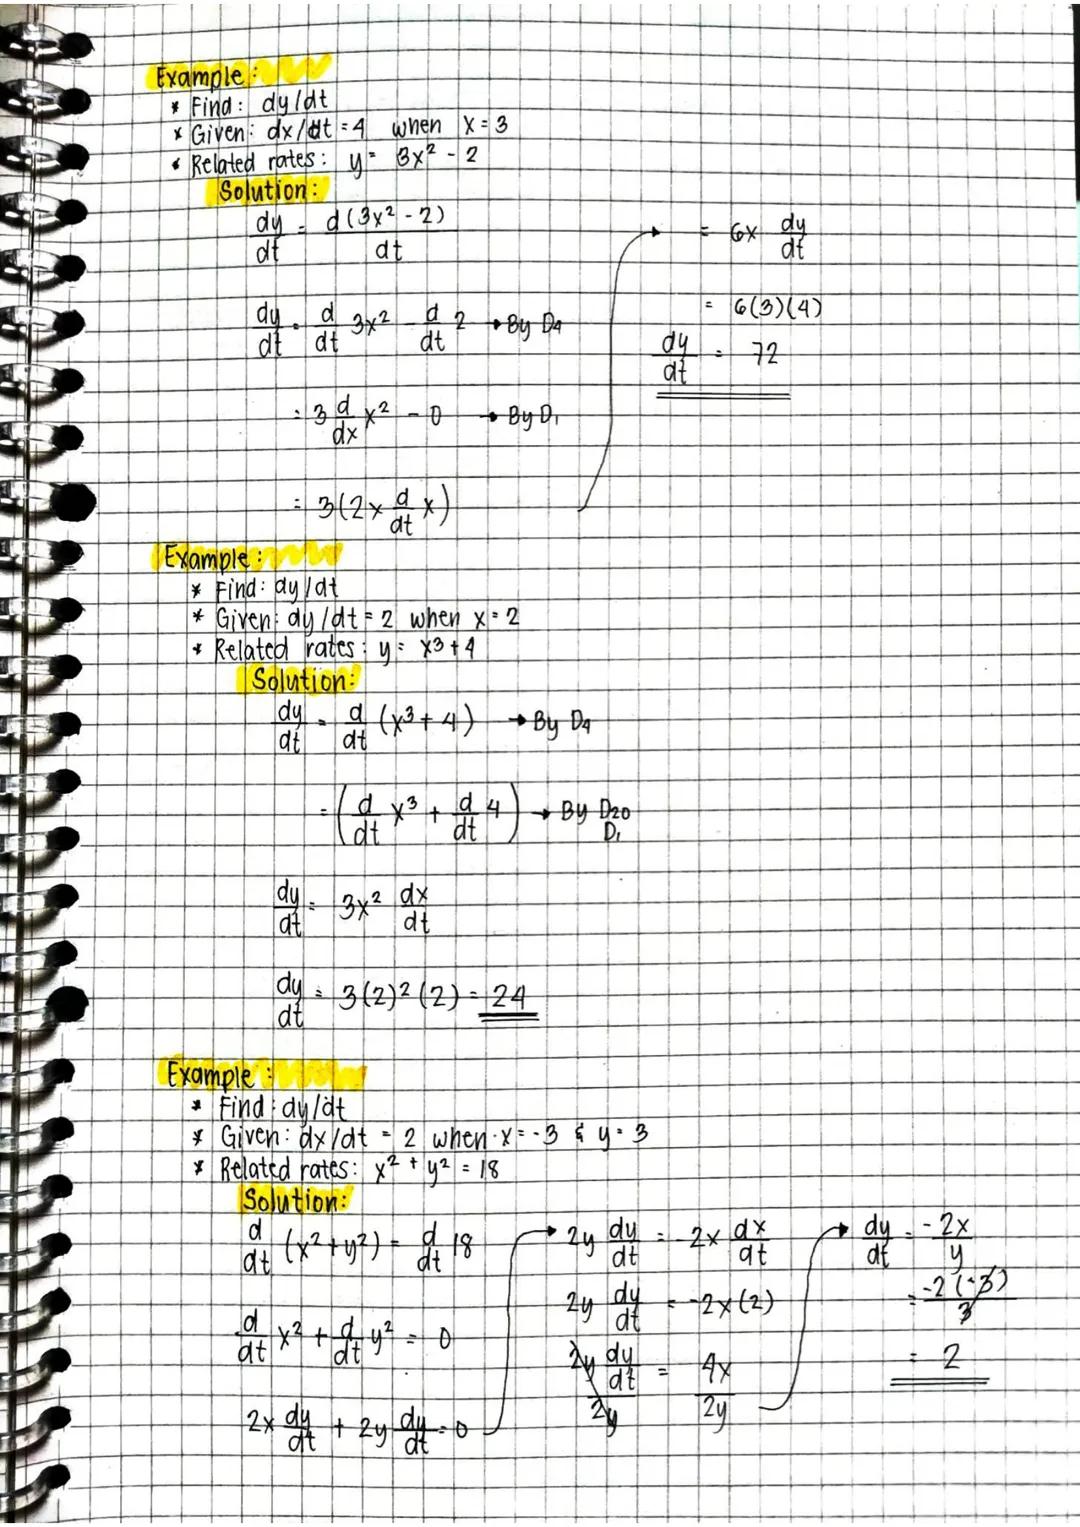 Example:
* Find: dy/dt
* Given: dx/dt = 4 when x = 3
* Related rates: y = 3x² - 2
Solution:
dy/dt = d(3x² - 2)/dt
dy/dt = d/dt 3x² - d/dt 2 → By D4
= 3 d/dx x² - 0 → By D₁
= 3(2x d/dt x)
= 6x dy/dt
= 6(3)(4)
dy/dt = 72
Example:
* Find: dy/dt
* Given: dy/dt = 2 when x = 2
* Related rates: y = x3 + 4
Solution:
dy/dt = d/dt (x³ + 4) → By D4
= (d/dt x³ + d/dt 4) → By D20
D₁
dy/dt = 3x² dx/dt
dy/dt = 3(2)²(2) = 24
Example:
* Find: dy/dt
* Given: dx/dt = 2 when x = -3 & y = 3
* Related rates: x² + y² = 18
Solution:
d/dt (x² + y²) = d/dt 18
d/dt x² + d/dt y² = 0
2x dy/dt + 2y dy/dt = 0
→ 2y dy/dt = -2x dx/dt
2y dy/dt = -2x(2)
2y dy/dt / 2y = 4x / 2y
→ dy/dt = -2x/y
= -2(-3)/3
= 2